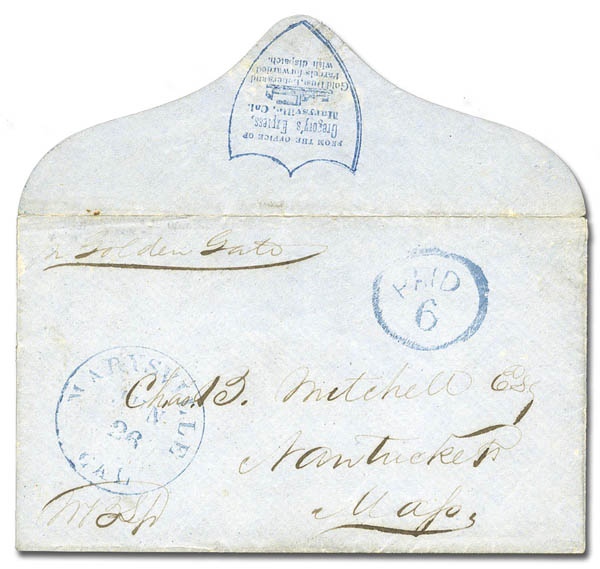 FROM THE OFFICE OF
Gregory's Express,
Marysville, Cal.
Gold Dust, Letters and
Parcels forwarded
with dispatch.
Golden Gate
PAID
6
MARYSVILLE
26
CAL
Chas. B. Mitchell Esq
Nantucket
Mass.